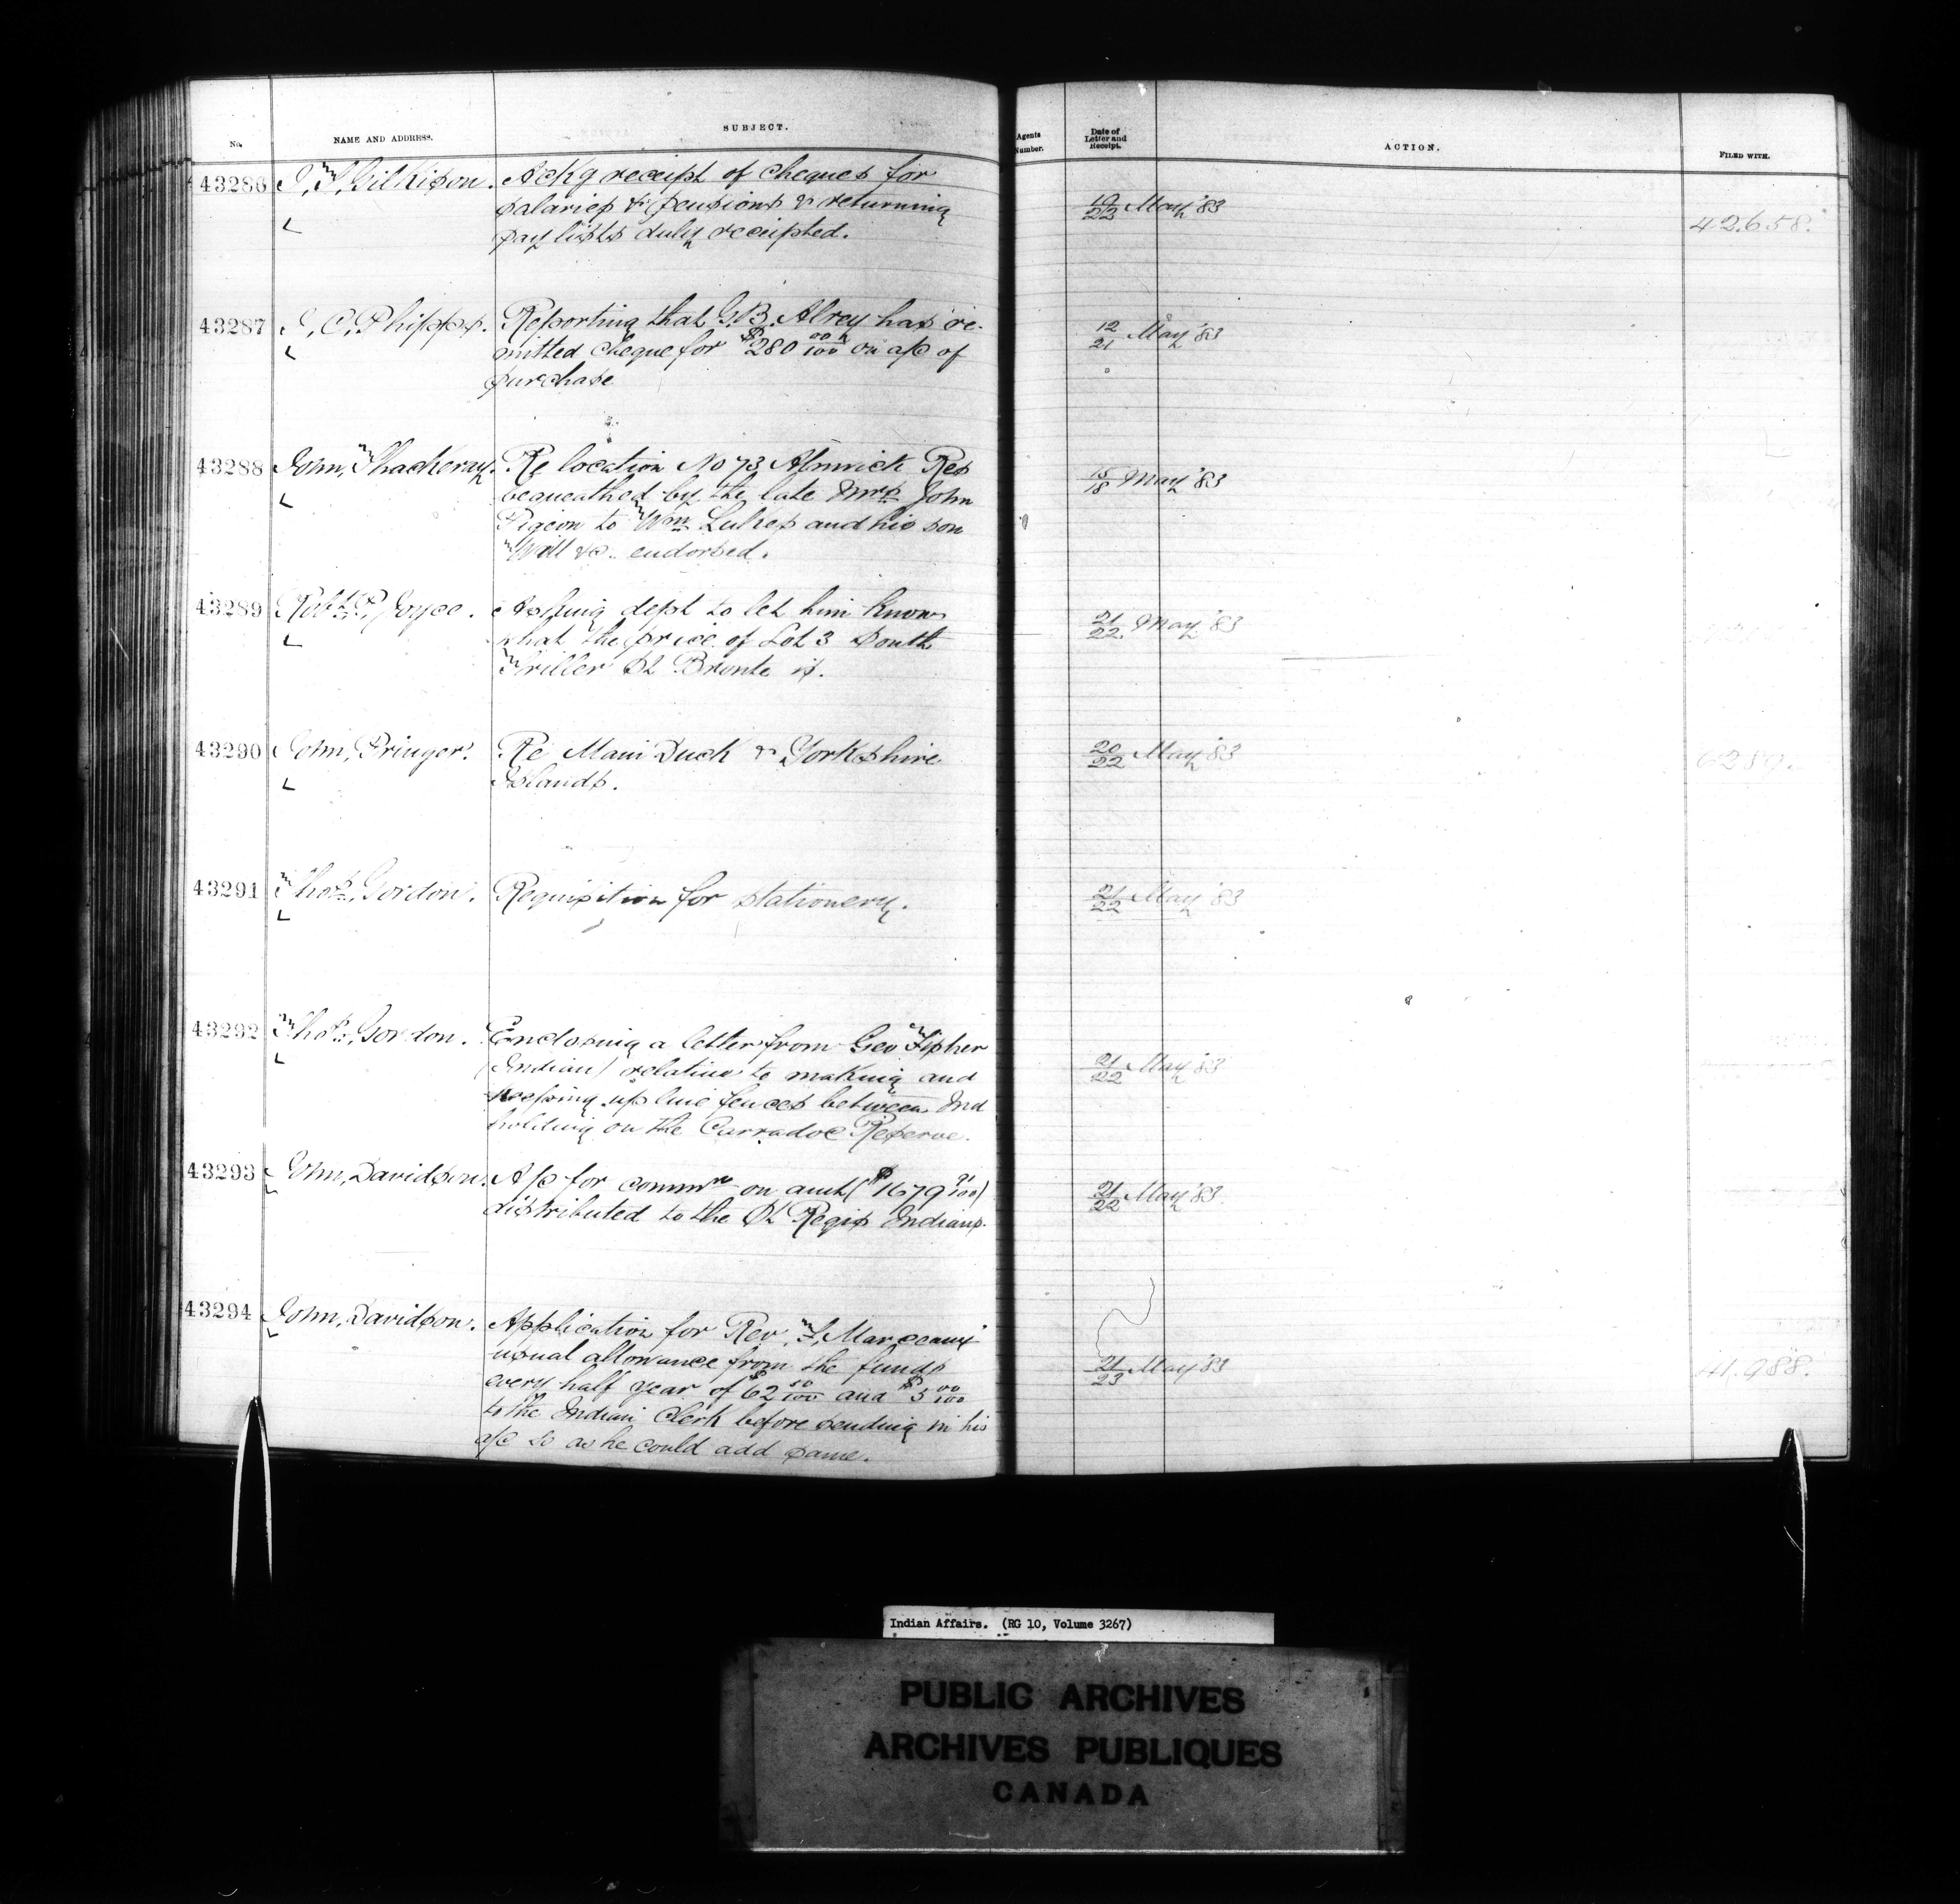 No. NAME AND ADDRESS. SUBJECT. Agents Number. Date of Letter and Receipt. ACTION. FILED WITH.
43286 J, T, Gilkison. Ackg receipt of cheques for 19/23 May '83 42.658.
salaries & pensions & returning
pay lists duly receipted.
43287 J, C, Phipps. Reporting that G.B. Abrey has re- 12/21 May '83
mitted cheque for $280 00/100 on a/c of
purchase
43288 John, Thackeray. Re location No 73 Alnwick Res 15/18 May '83
bequeathed by the late Mrs John
Pigeon to Wm Lukes and his son
Will &c. endorsed.
43289 Robt P, Joyce. Asking dept to let him know 21/22 May '83
what the price of Lot 3 South
Triller St Bronte is.
43290 John, Pringer. Re Main Duck & Yorkshire 20/22 May '83 6289.
Islands.
43291 Thos, Gordon. Requisition for stationery. 21/22 May '83
43292 Thos, Gordon. Enclosing a letter from Geo Fisher
(Indian) relative to making and 21/22 May '83
keeping up line fences between Ind
holding on the Carradoc Reserve.
43293 John, Davidson. A/c for commn on amt ($1679 91/100) 21/22 May '83
distributed to the St Regis Indians.
43294 John, Davidson. Application for Rev, F, Marceaux
usual allowance from the funds 21/23 May '83 41.988.
every half year of $62 50/100 and $5 00/100
to the Indian Clerk before sending in his
a/c so as he could add same.
Indian Affairs. (RG 10, Volume 3267)
PUBLIC ARCHIVES
ARCHIVES PUBLIQUES
CANADA